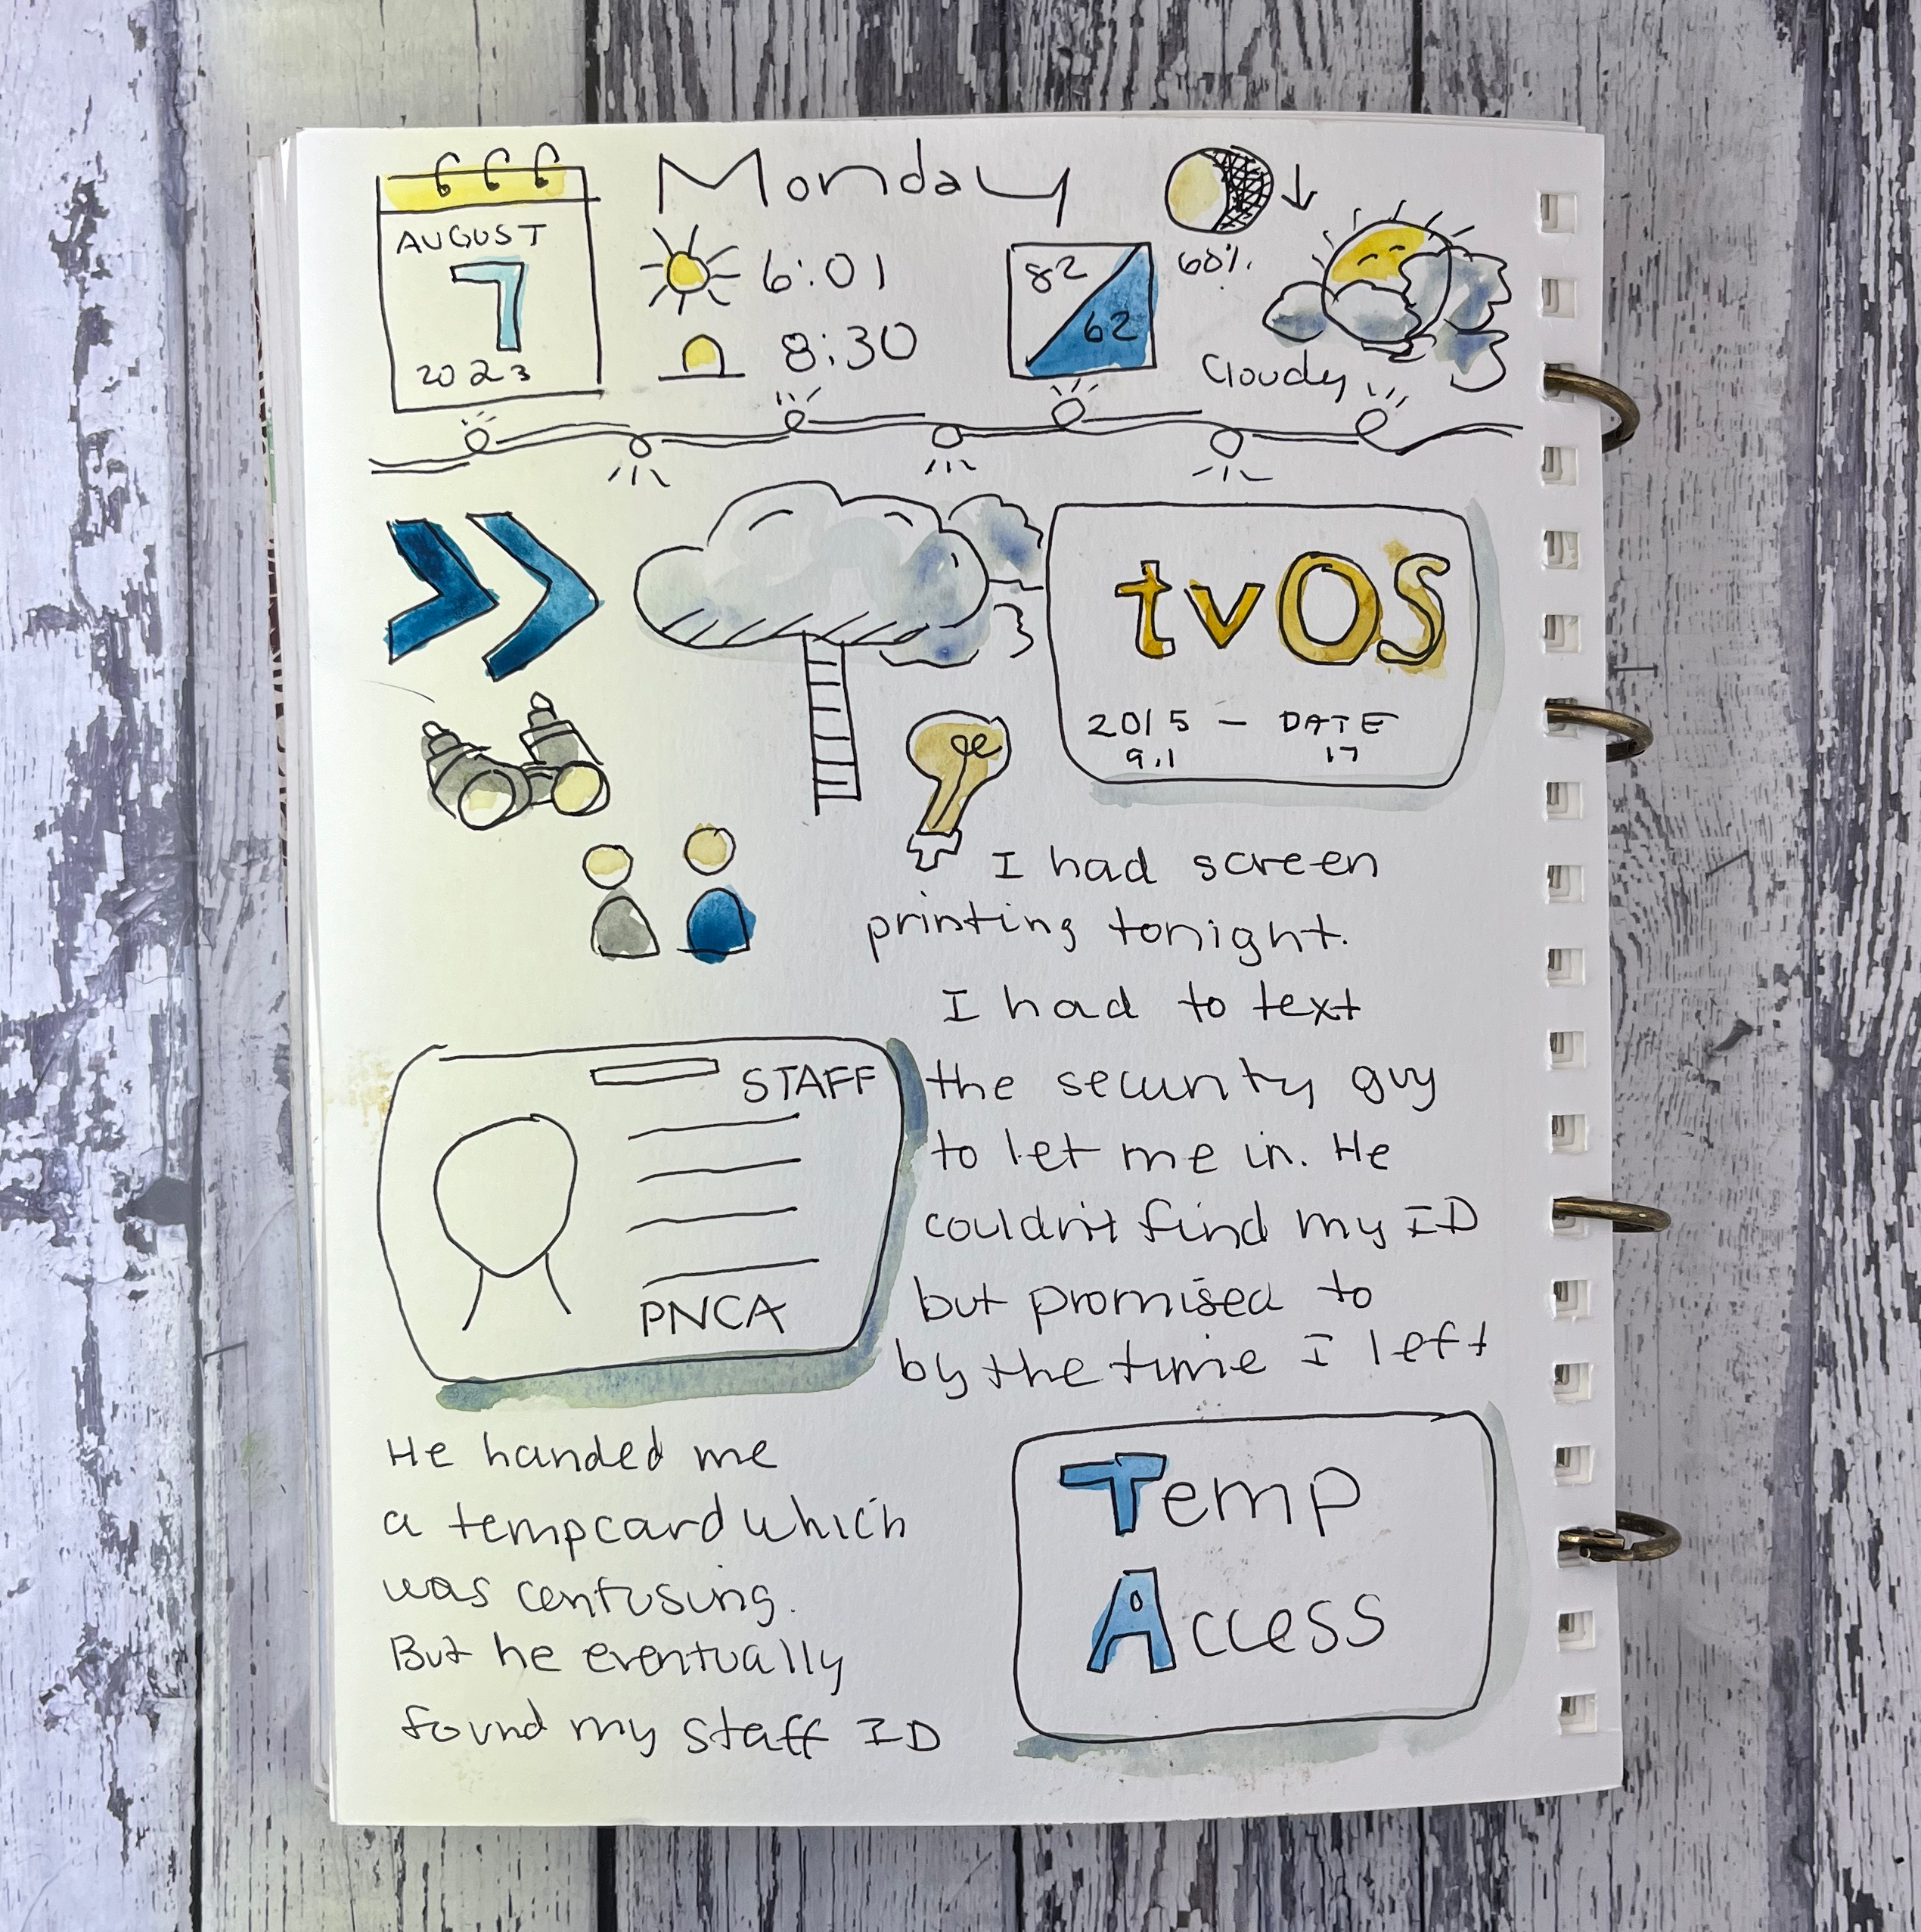 Monday
AUGUST
7
2023
6:01
8:30
82
62
60%
Cloudy
tvOS
2015 — DATE
9.1 17
I had screen
printing tonight.
I had to text
the security guy
to let me in. He
couldn't find my ID
but promised to
by the time I left
STAFF
PNCA
He handed me
a temp card which
was confusing.
But he eventually
found my staff ID
Temp
Access